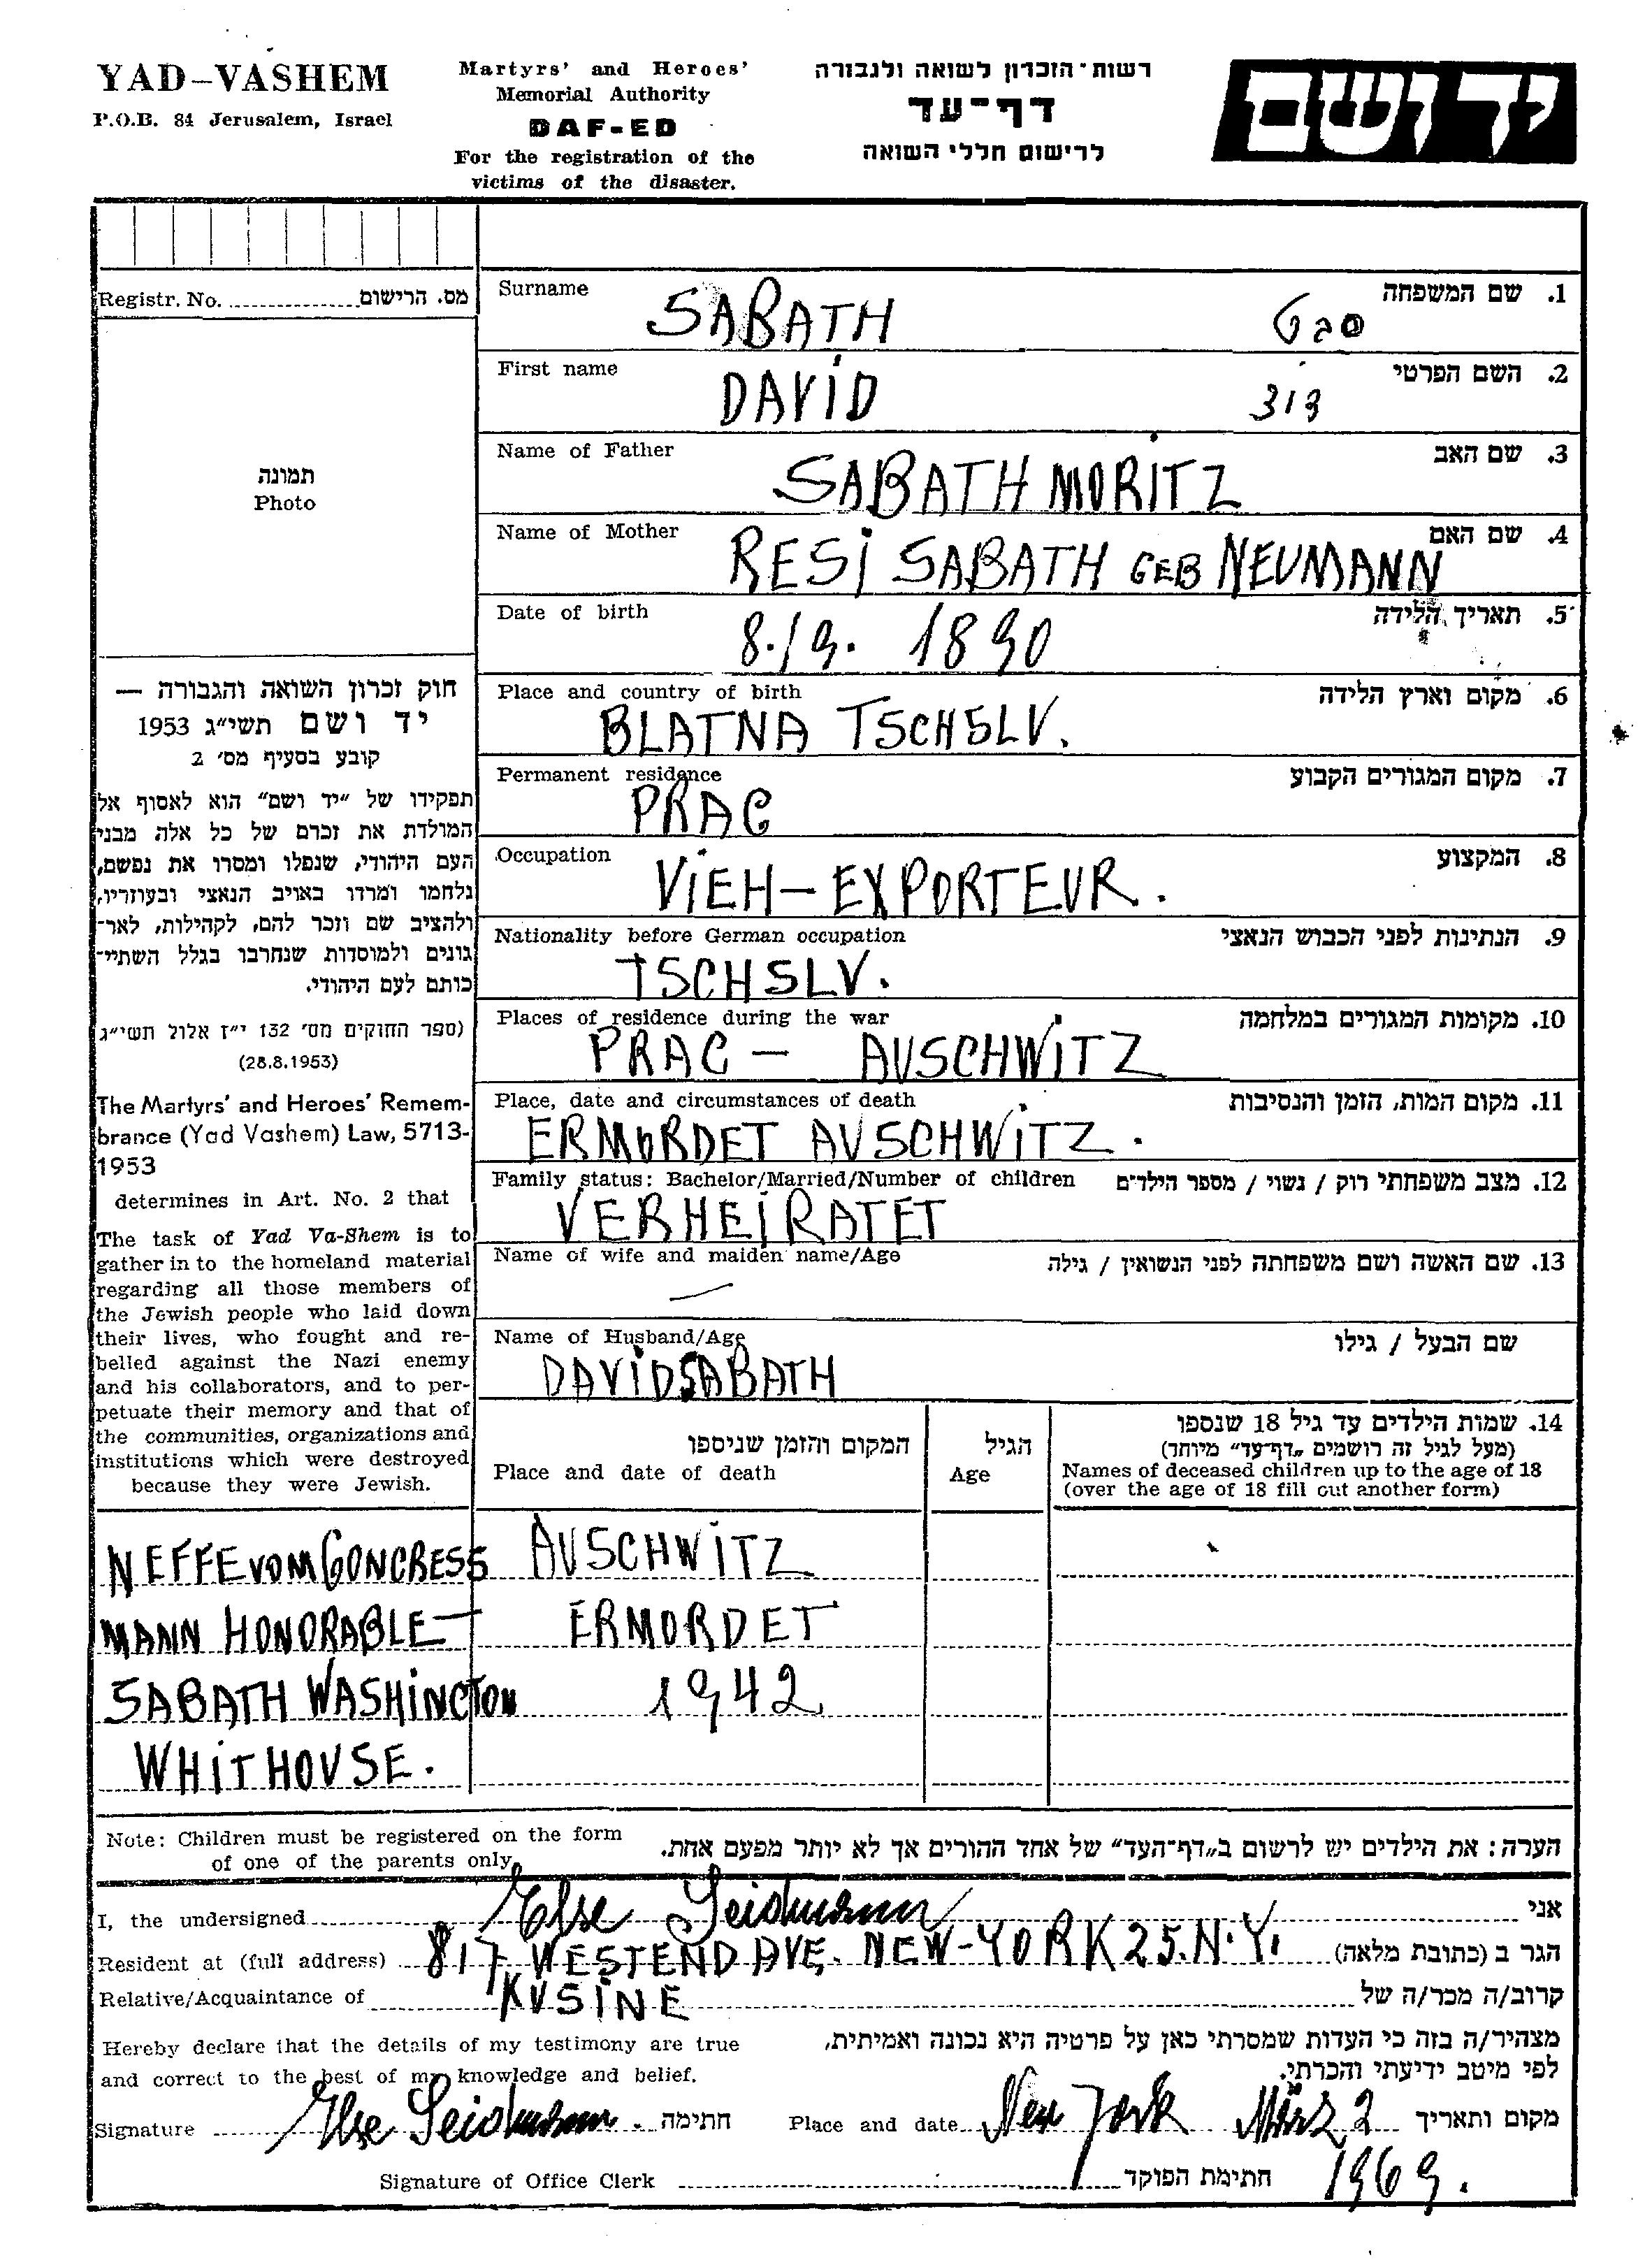 YAD-VASHEM
P.O.B. 84 Jerusalem, Israel
Martyrs' and Heroes'
Memorial Authority
DAF-ED
For the registration of the
victims of the disaster.
רשות-הזכרון לשואה ולגבורה
דף-עד
לרישום חללי השואה
יד ושם
Registr. No. מס. הרישום
תמונה
Photo
חוק זכרון השואה והגבורה —
יד ושם תשי״ג 1953
קובע בסעיף מס׳ 2
תפקידו של ״יד ושם״ הוא לאסוף אל
המולדת את זכרם של כל אלה מבני
העם היהודי, שנפלו ומסרו את נפשם,
נלחמו ומרדו באויב הנאצי ובעוזריו,
ולהציב שם וזכר להם, לקהילות, לאר-
גונים ולמוסדות שנחרבו בגלל השתיי-
כותם לעם היהודי.
(ספר החוקים מס׳ 132 י״ז אלול תשי״ג
(28.8.1953)
The Martyrs' and Heroes' Remem-
brance (Yad Vashem) Law, 5713-
1953
determines in Art. No. 2 that
The task of Yad Va-Shem is to
gather in to the homeland material
regarding all those members of
the Jewish people who laid down
their lives, who fought and re-
belled against the Nazi enemy
and his collaborators, and to per-
petuate their memory and that of
the communities, organizations and
institutions which were destroyed
because they were Jewish.
Surname 1. שם המשפחה
SABATH סבט
First name 2. השם הפרטי
DAVID דוד
Name of Father 3. שם האב
SABATH MORITZ
Name of Mother 4. שם האם
RESI SABATH GEB NEUMANN
Date of birth 5. תאריך הלידה
8./9. 1890
Place and country of birth 6. מקום וארץ הלידה
BLATNA TSCHSLV.
Permanent residence 7. מקום המגורים הקבוע
PRAG
Occupation 8. המקצוע
VIEH-EXPORTEUR.
Nationality before German occupation 9. הנתינות לפני הכבוש הנאצי
TSCHSLV.
Places of residence during the war 10. מקומות המגורים במלחמה
PRAG — AUSCHWITZ
Place, date and circumstances of death 11. מקום המות, הזמן והנסיבות
ERMORDET AUSCHWITZ.
Family status: Bachelor/Married/Number of children 12. מצב משפחתי רוק / נשוי / מספר הילדים
VERHEIRATET
Name of wife and maiden name/Age 13. שם האשה ושם משפחתה לפני הנשואין / גילה
—
Name of Husband/Age שם הבעל / גילו
DAVID SABATH
המקום והזמן שניספו
Place and date of death
הגיל
Age
14. שמות הילדים עד גיל 18 שנספו
(מעל לגיל זה רושמים „דף-עד״ מיוחד)
Names of deceased children up to the age of 18
(over the age of 18 fill out another form)
NEFFE VOM CONGRESS
MANN HONORABLE —
SABATH WASHINGTON
WHITHOUSE.
AUSCHWITZ
ERMORDET
1942
Note: Children must be registered on the form
of one of the parents only.
הערה: את הילדים יש לרשום ב„דף-העד״ של אחד ההורים אך לא יותר מפעם אחת.
I, the undersigned Else Seidmann אני
Resident at (full address) 817 WESTEND AVE. NEW-YORK 25. N.Y. הגר ב (כתובת מלאה)
Relative/Acquaintance of KUSINE קרוב/ה מכר/ה של
Hereby declare that the details of my testimony are true
and correct to the best of my knowledge and belief.
מצהיר/ה בזה כי העדות שמסרתי כאן על פרטיה היא נכונה ואמיתית,
לפי מיטב ידיעתי והכרתי.
Signature Else Seidmann. חתימה
Place and date New York März 2 מקום ותאריך
1969.
Signature of Office Clerk חתימת הפוקד